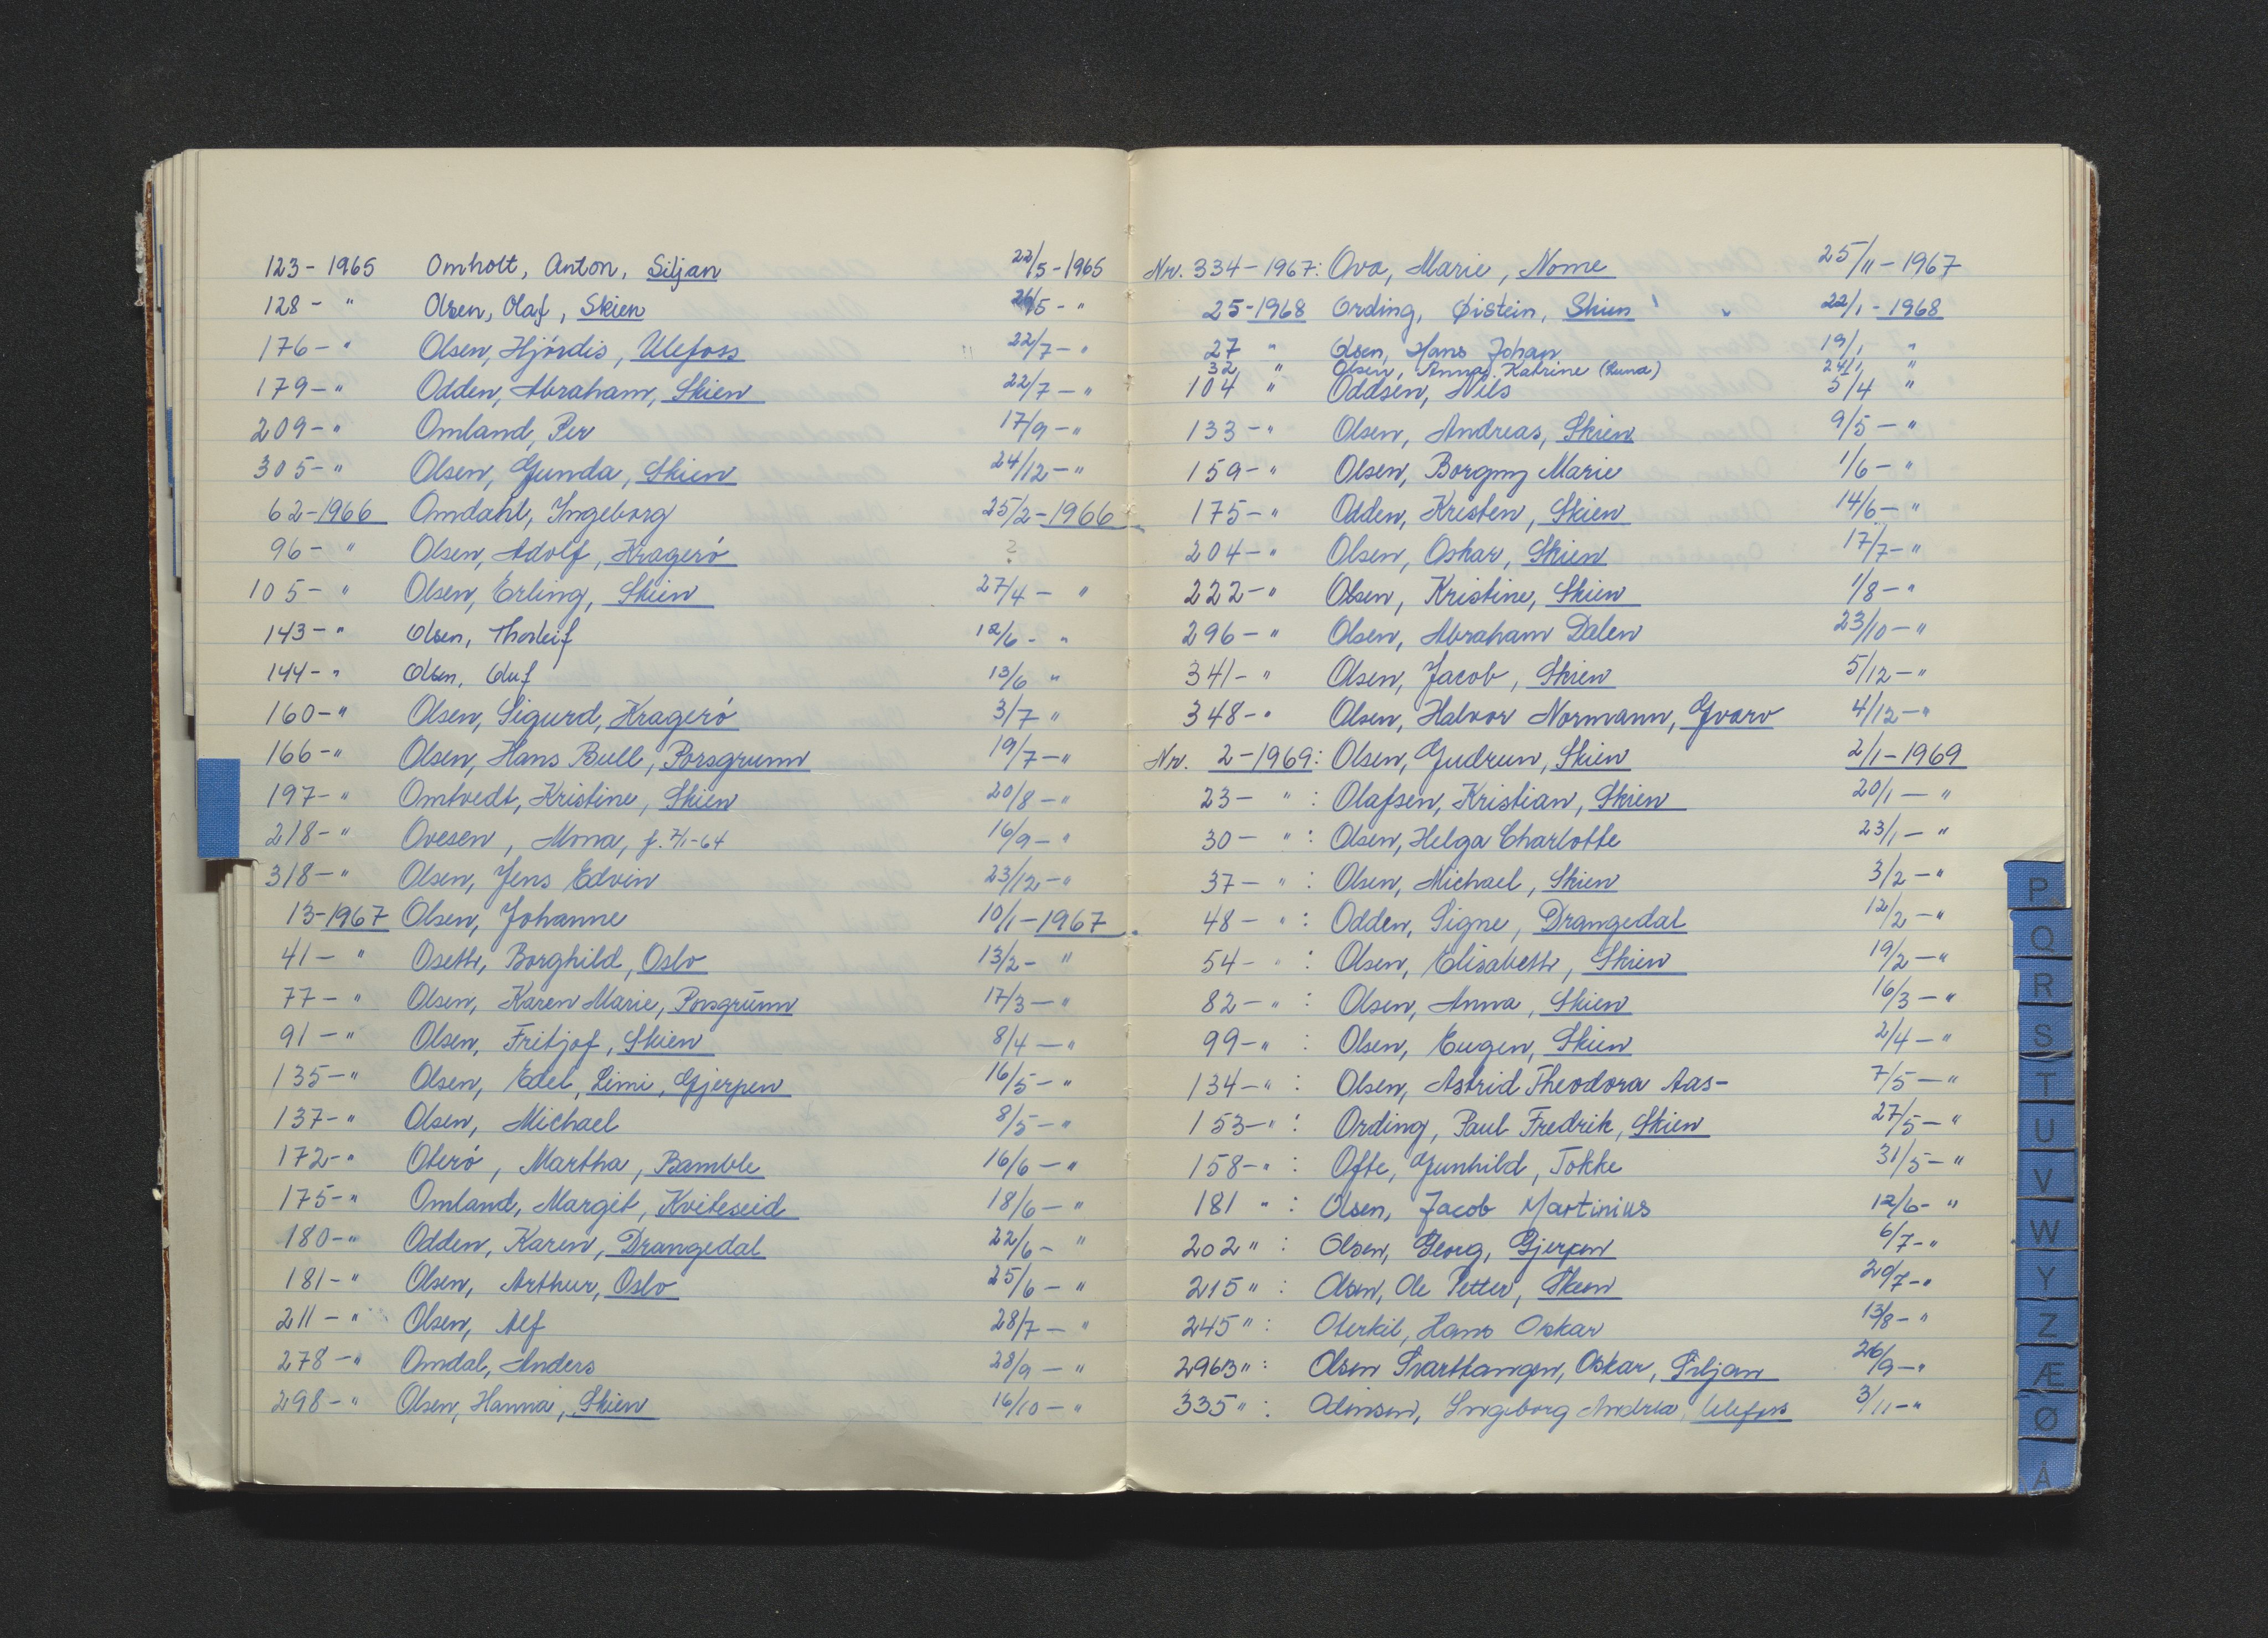 123 - 1965 Omholt, Anton, Siljan 22/5 - 1965
128 - " Olsen, Olaf, Skien 26/5 - "
176 - " Olsen, Hjördis, Ulefoss 22/7 - "
179 - " Odden, Abraham, Skien 22/7 - "
209 - " Omland, Per 17/9 - "
305 - " Olsen, Gunda, Skien 24/12 - "
62 - 1966 Omdahl, Ingeborg 25/2 - 1966
96 - " Olsen, Adolf, Kragerö ?
105 - " Olsen, Erling, Skien 27/4 - "
143 - " Olsen, Thorleif 12/6 - "
144 - " Olsen, Oluf 13/6 "
160 - " Olsen, Sigurd, Kragerö 3/7 "
166 - " Olsen, Hans Bull, Porsgrunn 19/7 - "
197 - " Omtvedt, Kristine, Skien 20/8 - "
218 - " Ovesen, Mona, f. 7/1-64 16/9 - "
318 - " Olsen, Jens Edvin 23/12 - "
13 - 1967 Olsen, Johanne 10/1 - 1967
41 - " Oseth, Borghild, Oslo 13/2 - "
77 - " Olsen, Karen Marie, Porsgrunn 17/3 - "
91 - " Olsen, Fritjof, Skien 8/4 - "
135 - " Olsen, Edel, Limi, Gjerpen 16/5 - "
137 - " Olsen, Michael 8/5 - "
172 - " Oterö, Martha, Bamble 16/6 - "
175 - " Omland, Margit, Kviteseid 18/6 - "
180 - " Odden, Karen, Drangedal 22/6 - "
181 - " Olsen, Arthur, Oslo 25/6 - "
211 - " Olsen, Alf 28/7 - "
278 - " Omdal, Anders 28/9 - "
298 - " Olsen, Hanna, Skien 16/10 - "
Nr. 334 - 1967: Ova, Marie, Nome 25/11 - 1967
25 - 1968 Ording, Øistein, Skien " 22/1 - 1968
27 " Olsen, Hans Johan 19/1 "
32 " Olsen, Anna Katrine (Luna) 24/1 "
104 " Oddsen, Nils 5/4 "
133 - " Olsen, Andreas, Skien 9/5 - "
159 - " Olsen, Borgny Marie 1/6 - "
175 - " Odden, Kristen, Skien 14/6 - "
204 - " Olsen, Oskar, Skien 17/7 - "
222 - " Olsen, Kristine, Skien 1/8 - "
296 - " Olsen, Abraham Dalen 23/10 - "
341 - " Olsen, Jacob, Skien 5/12 - "
348 - " Olsen, Halvor Normann, Gvarv 4/12 - "
Nr. 2 - 1969: Olsen, Gudrun, Skien 2/1 - 1969
23 - " : Olafsen, Kristian, Skien 20/1 - "
30 - " : Olsen, Helga Charlotte 23/1 - "
37 - " : Olsen, Michael, Skien 3/2 - "
48 - " : Odden, Signe, Drangedal 12/2 - "
54 - " : Olsen, Elisabeth, Skien 19/2 - "
82 - " : Olsen, Anna, Skien 16/3 - "
99 - " : Olsen, Eugen, Skien 2/4 - "
134 - " : Olsen, Astrid Theodora Aas - 7/5 - "
153 - " : Ording, Paul Fredrik, Skien 27/5 - "
158 - " : Ofte, Gunhild, Tokke 31/5 - "
181 " : Olsen, Jacob Martinius 12/6 - "
202 " : Olsen, Georg, Gjerpen 6/7 - "
215 " : Olsen, Ole Petter, Skien 20/7 - "
245 " : Oterkil, Hans Oskar 13/8 - "
2963 " : Olsen Svarttangen, Oskar, Siljan 26/9 - "
335 " : Ingeborg Andrea Ulefoss 3/11 - "
P
Q
R
S
T
U
V
W
Y
Z
Æ
Ø
Å